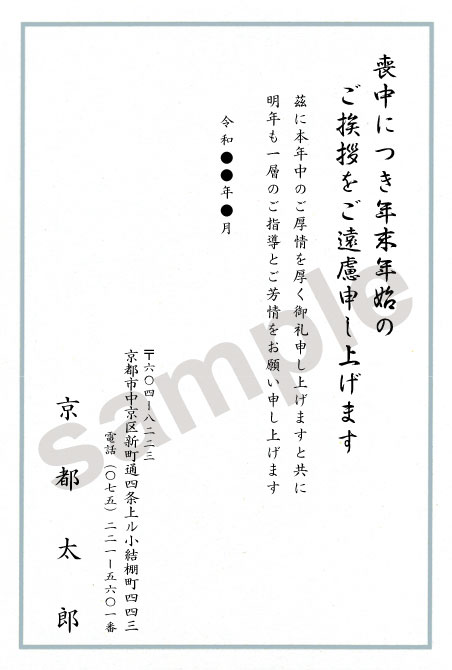 喪中につき年末年始の
ご挨拶をご遠慮申し上げます
茲に本年中のご厚情を厚く御礼申し上げますと共に
明年も一層のご指導とご芳情をお願い申し上げます
令和●●年●月
〒六〇四ー八二二三
京都市中京区新町通四条上ル小結棚町四四三
電話（〇七五）二二一ー五六〇一番
京都太郎
sample